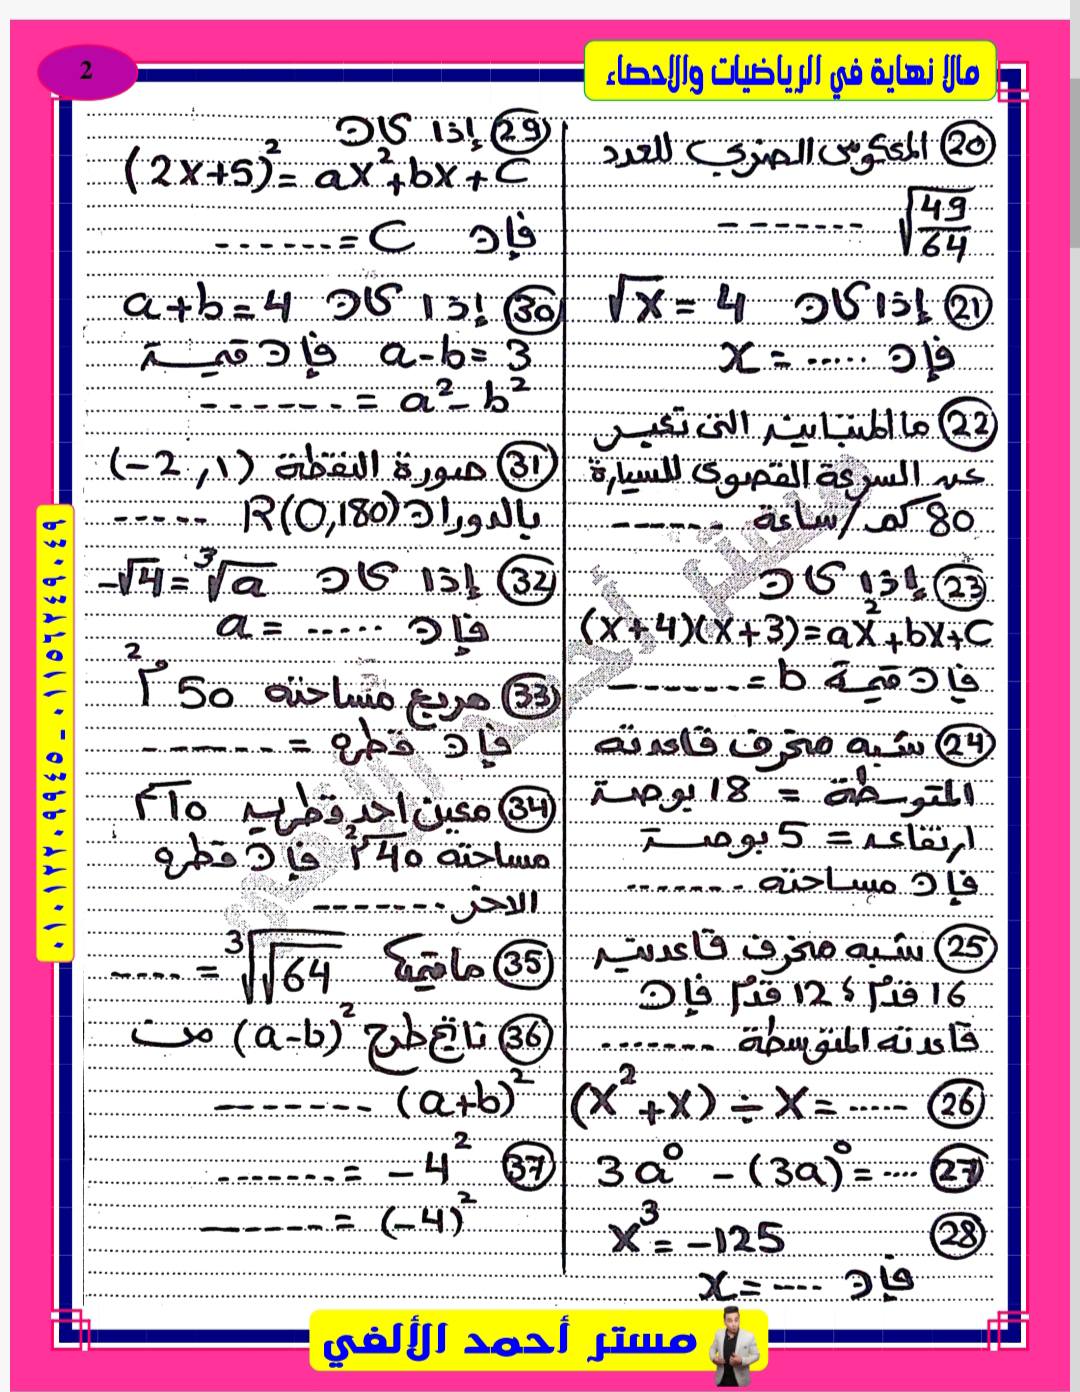 مالا نهاية في الرياضيات والاحصاء
2
20 المعكوس الضربي للعدد
√(49/64) -------
21 إذا كان √x = 4
فإن x = .....
22 ما المتباينة التى تعبر
عن السرعة القصوى للسيارة
80 كم/ساعة ------
23 إذا كان
(x+4)(x+3)=ax²+bx+c
فإن قيمة b = -------
24 شبه منحرف قاعدته
المتوسطة = 18 بوصة
ارتفاعه = 5 بوصة
فإن مساحته -------
25 شبه منحرف قاعدتيه
16 قدم ، 12 قدم فإن
قاعدته المتوسطة -------
26 (x²+x) ÷ x = -----
27 3a⁰ - (3a)⁰ = ----
28 x³ = -125
فإن x = ----
29 إذا كان
(2x+5)² = ax²+bx+c
فإن c = ------
30 إذا كان a+b=4
a-b=3 فإن قيمة
a²-b² = ------
31 صورة النقطة (-2, 1)
بالدوران R(0,180) -----
32 إذا كان ∛a = -√4
فإن a = .....
33 مربع مساحته 50 م²
فإن قطره = ------
34 معين احد قطريه 10 م
مساحته 40 م² فإن قطره
الاخر -------
35 ما قيمة ∛√64 = -----
36 ناتج طرح (a-b)² من
(a+b)² -------
37 -4² = -------
(-4)² = ------
٠١٠١٢٢٠٩٩٤٥ - ٠١١٥٦٢٤٩٠٤٩
مستر أحمد الألفي